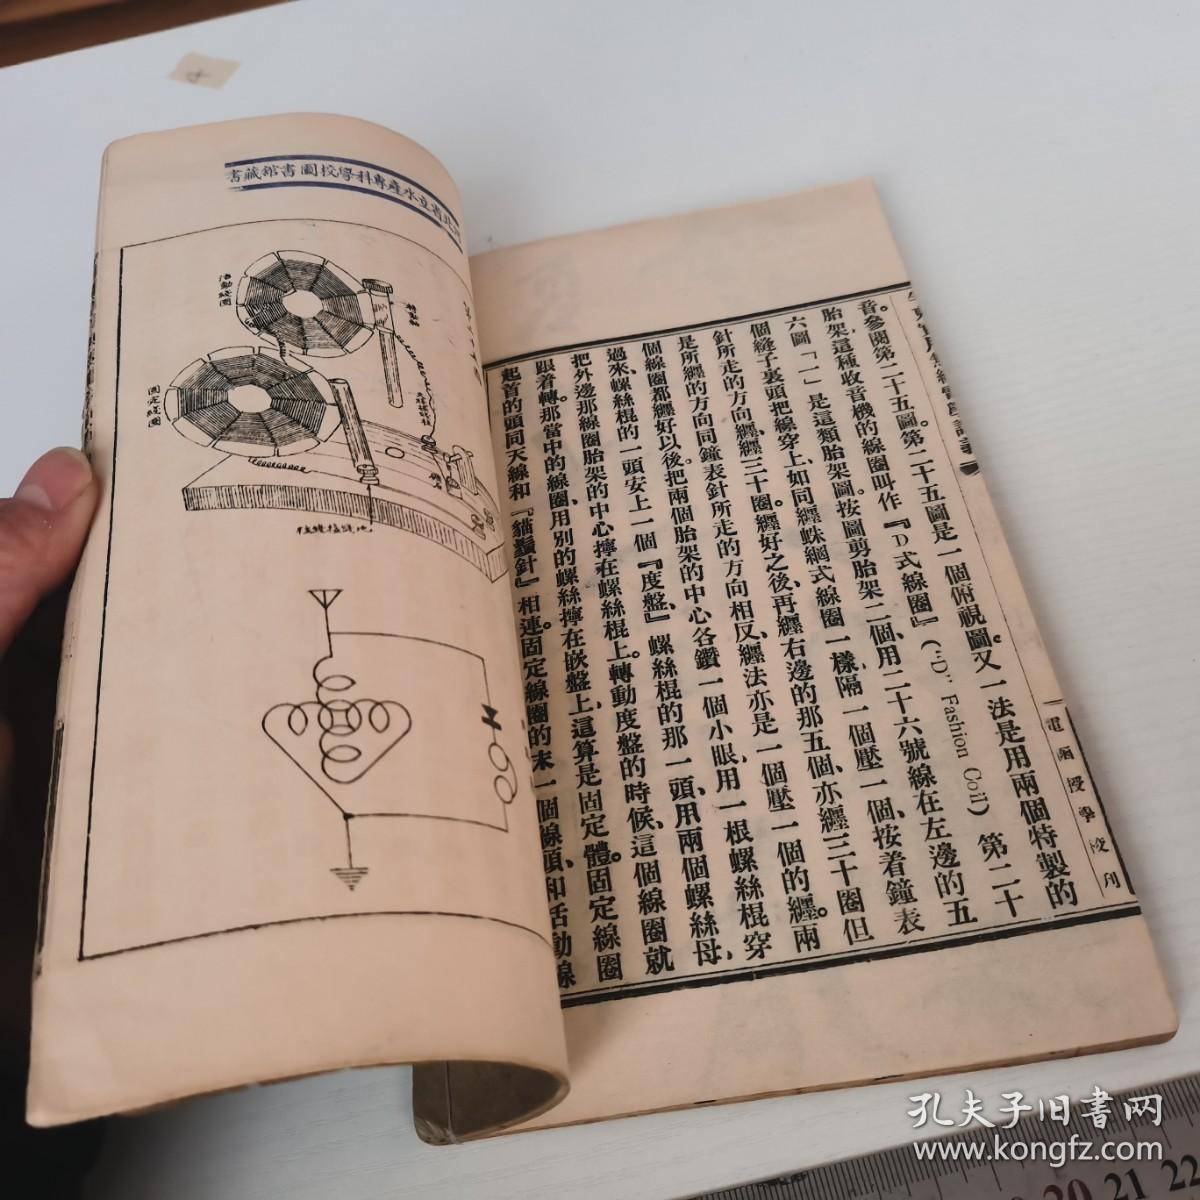 音。參閱第二十五圖。第二十五圖是一個俯視圖。又一法是用兩個特製的
胎架，這種收音機的線圈叫作『D式線圈』("D" Fashion Coil) 第二十
六圖「一」是這類胎架圖。按圖剪胎架二個、用二十六號線在左邊的五
個縫子裏頭把線穿上、如同纏蛛網式線圈一樣、隔一個壓一個、按着鐘表
針所走的方向、纏三十圈。纏好之後、再纏右邊的那五個、亦纏三十圈但
是所纏的方向同鐘表針所走的方向相反、纏法亦是一個壓一個的纏。兩
個線圈都纏好以後、把兩個胎架的中心各鑽一個小眼、用一根螺絲棍穿
過來、螺絲棍的一頭安上一個『度盤』、螺絲棍的那一頭、用兩個螺絲母、
把外邊那線圈胎架的中心擰在螺絲棍上。轉動度盤的時候、這個線圈就
跟着轉。那當中的線圈、用別的螺絲擰在嵌盤上、這算是固定體。固定線圈
起首的頭同天線和『貓鬚針』相連。固定線圈的末一個線頭、和活動線
電函授學校刊
北省立水產專科學校圖書館藏書
活動線圈
固定線圈
地線接線柱
孔夫子旧書网
www.kongfz.com
20 21 22